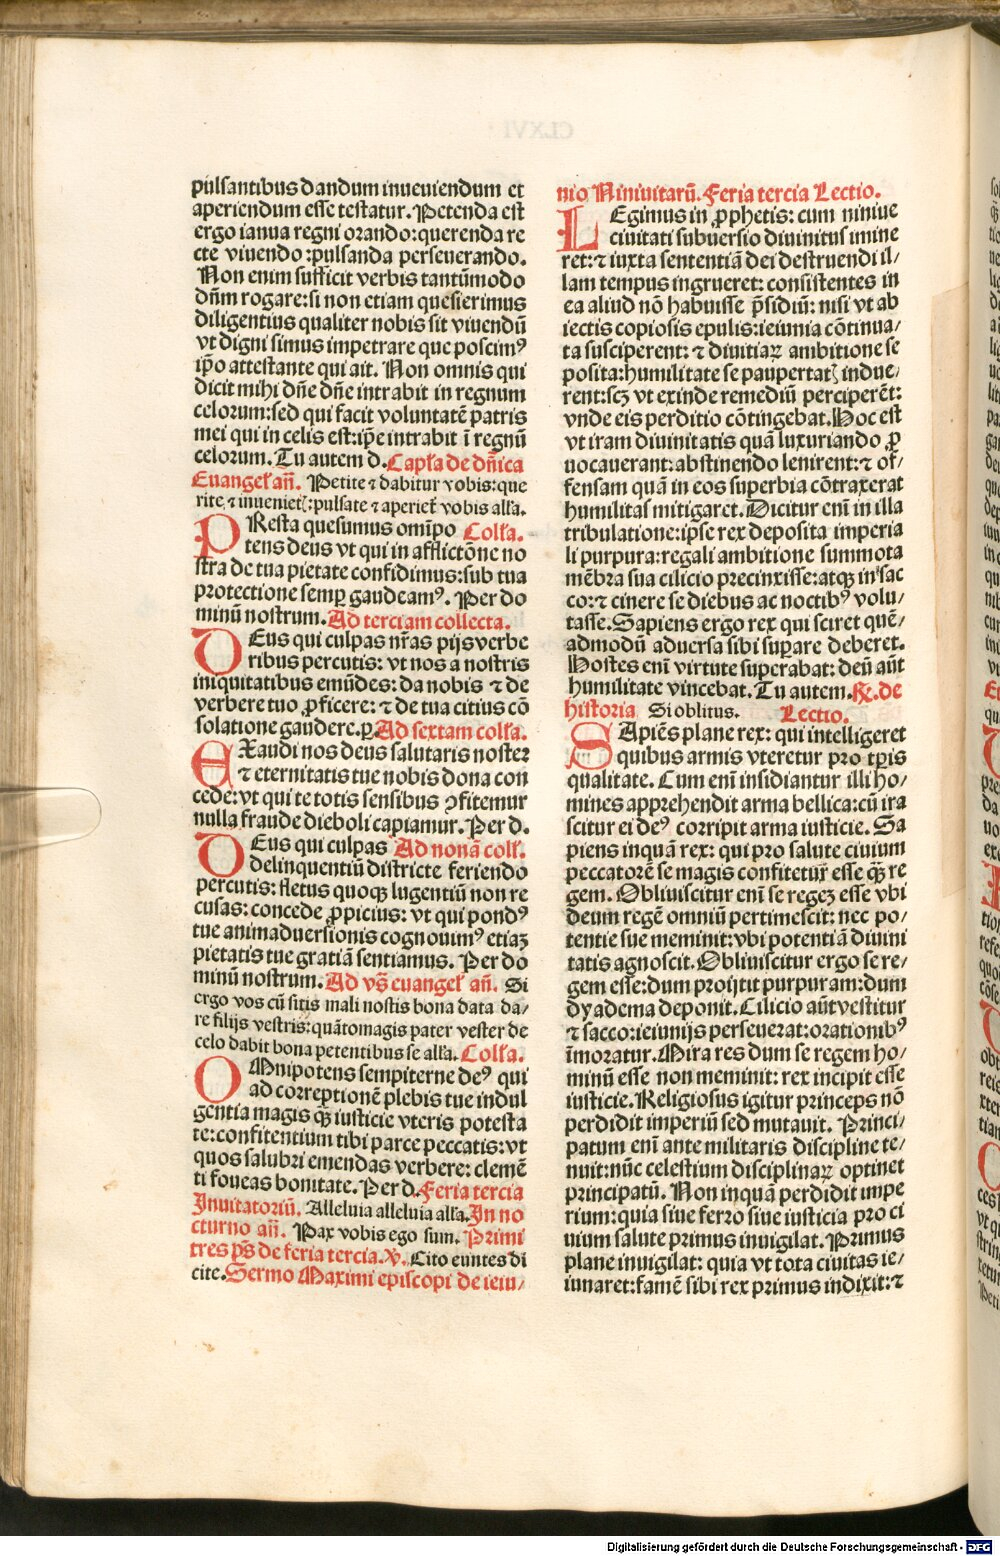 pulsantibus dandum inueniendum et
aperiendum esse testatur. Petenda est
ergo ianua regni orando: querenda re
cte viuendo: pulsanda perseuerando.
Non enim sufficit verbis tantūmodo
dn̄m rogare: si non etiam quesierimus
diligentius qualiter nobis sit viuendū
vt digni simus impetrare que poscimꝰ
ip̄o attestante qui ait. Non omnis qui
dicit mihi dn̄e dn̄e intrabit in regnum
celorum: sed qui facit voluntatē patris
mei qui in celis est: ip̄e intrabit ī regnū
celorum. Tu autem d. Capl̄a de dn̄ica
Euangel̄ an̄. Petite ⁊ dabitur vobis: que
rite ⁊ inuenietꝭ: pulsate ⁊ aperiet᷑ vobis all̄a.
PResta quesumus omīpo Coll̄a.
tens deus vt qui in afflictōne no
stra de tua pietate confidimus: sub tua
protectione semꝑ gaudeamꝰ. Per do
minū nostrum. Ad terciam collecta.
DEus qui culpas nr̄as pijs verbe
ribus percutis: vt nos a nostris
iniquitatibus emūdes: da nobis ⁊ de
verbere tuo ꝓficere: ⁊ de tua citius cō
solatione gaudere. ꝑ. Ad sextam coll̄a.
EXaudi nos deus salutaris noster
⁊ eternitatis tue nobis dona con
cede: vt qui te totis sensibus ꝯfitemur
nulla fraude dieboli capiamur. Per d.
DEus qui culpas Ad nonā coll̄.
delinquentiū districte feriendo
percutis: fletus quoqꝫ lugentiū non re
cusas: concede ꝓpicius: vt qui pondꝰ
tue animaduersionis cognouimꝰ etiaꝫ
pietatis tue gratiā sentiamus. Per do
minū nostrum. Ad vs̄ euangel̄ an̄. Si
ergo vos cū sitis mali nostis bona data da⸗
re filijs vestris: quātomagis pater vester de
celo dabit bona petentibus se all̄a. Coll̄a.
OMnipotens sempiterne deꝰ qui
ad correptionē plebis tue indul
gentia magis qꝫ̄ iusticie vteris potesta
te: confitentium tibi parce peccatis: vt
quos salubri emendas verbere: clemē
ti foueas bonitate. Per d. Feria tercia
Inuitatoriū. Alleluia alleluia all̄a. In no
cturno an̄. Pax vobis ego sum. Primi
tres ps̄ de feria tercia. ℣. Cito euntes di
cite. Sermo Maximi episcopi de ieiu⸗
nio Niniuitarū. Feria tercia Lectio.
LEgimus in ꝓphetis: cum niniue
ciuitati subuersio diuinitus imine
ret: ⁊ iuxta sententiā dei destruendi il⸗
lam tempus ingrueret: consistentes in
ea aliud nō habuisse p̄sidiū: nisi vt ab
iectis copiosis epulis: ieiunia cōtinua⸗
ta susciperent: ⁊ diuitiaꝝ ambitione se
posita: humilitate se paupertatꝭ indue⸗
rent: scꝫ vt exinde remediū perciperēt:
vnde eis perditio cōtingebat. Hoc est
vt iram diuinitatis quā luxuriando ꝓ
uocauerant: abstinendo lenirent: ⁊ of⸗
fensam quā in eos superbia cōtraxerat
humilitas mitigaret. Dicitur eni᷑ in illa
tribulatione: ipse rex deposita imperia
li purpura: regali ambitione summota
mēbra sua cilicio precinxisse: atqꝫ in sac
co: ⁊ cinere se diebus ac noctibꝰ volu⸗
tasse. Sapiens ergo rex qui sciret quē⸗
admodū aduersa sibi suꝑare deberet.
Hostes eni᷑ virtute superabat: deū aūt
humilitate vincebat. Tu autem. ℟. de
historia Si oblitus. Lectio.
SApiēs plane rex: qui intelligeret
quibus armis vteretur pro tꝑis
qualitate. Cum eni᷑ insidiantur illi ho⸗
mines apprehendit arma bellica: cū ira
scitur ei deꝰ corripit arma iusticie. Sa
piens inquā rex: qui pro salute ciuium
peccatorē se magis confitetur̄ esse qꝫ̄ re
gem. Obliuiscitur eni᷑ se regeꝫ esse vbi
deum regē omniū pertimescit: nec po⸗
tentie sue meminit: vbi potentiā diuini
tatis agnoscit. Obliuiscitur ergo se re⸗
gem esse: dum proijcit purpuram: dum
dyadema deponit. Cilicio aūt vestitur
⁊ sacco: ieiunijs perseuerat: orationibꝰ
īmoratur. Mira res dum se regem ho⸗
minū esse non meminit: rex incipit esse
iusticie. Religiosus igitur princeps nō
perdidit imperiū sed mutauit. Princi⸗
patum eni᷑ ante militaris discipline te⸗
nuit: nūc celestium disciplinaꝝ optinet
principatū. Non inquā perdidit impe
rium: quia siue ferro siue iusticia pro ci
uium salute primus inuigilat. Primus
plane inuigilat: quia vt tota ciuitas ie⸗
iunaret: famē sibi rex primus indixit: ⁊
Digitalisierung gefördert durch die Deutsche Forschungsgemeinschaft - DFG